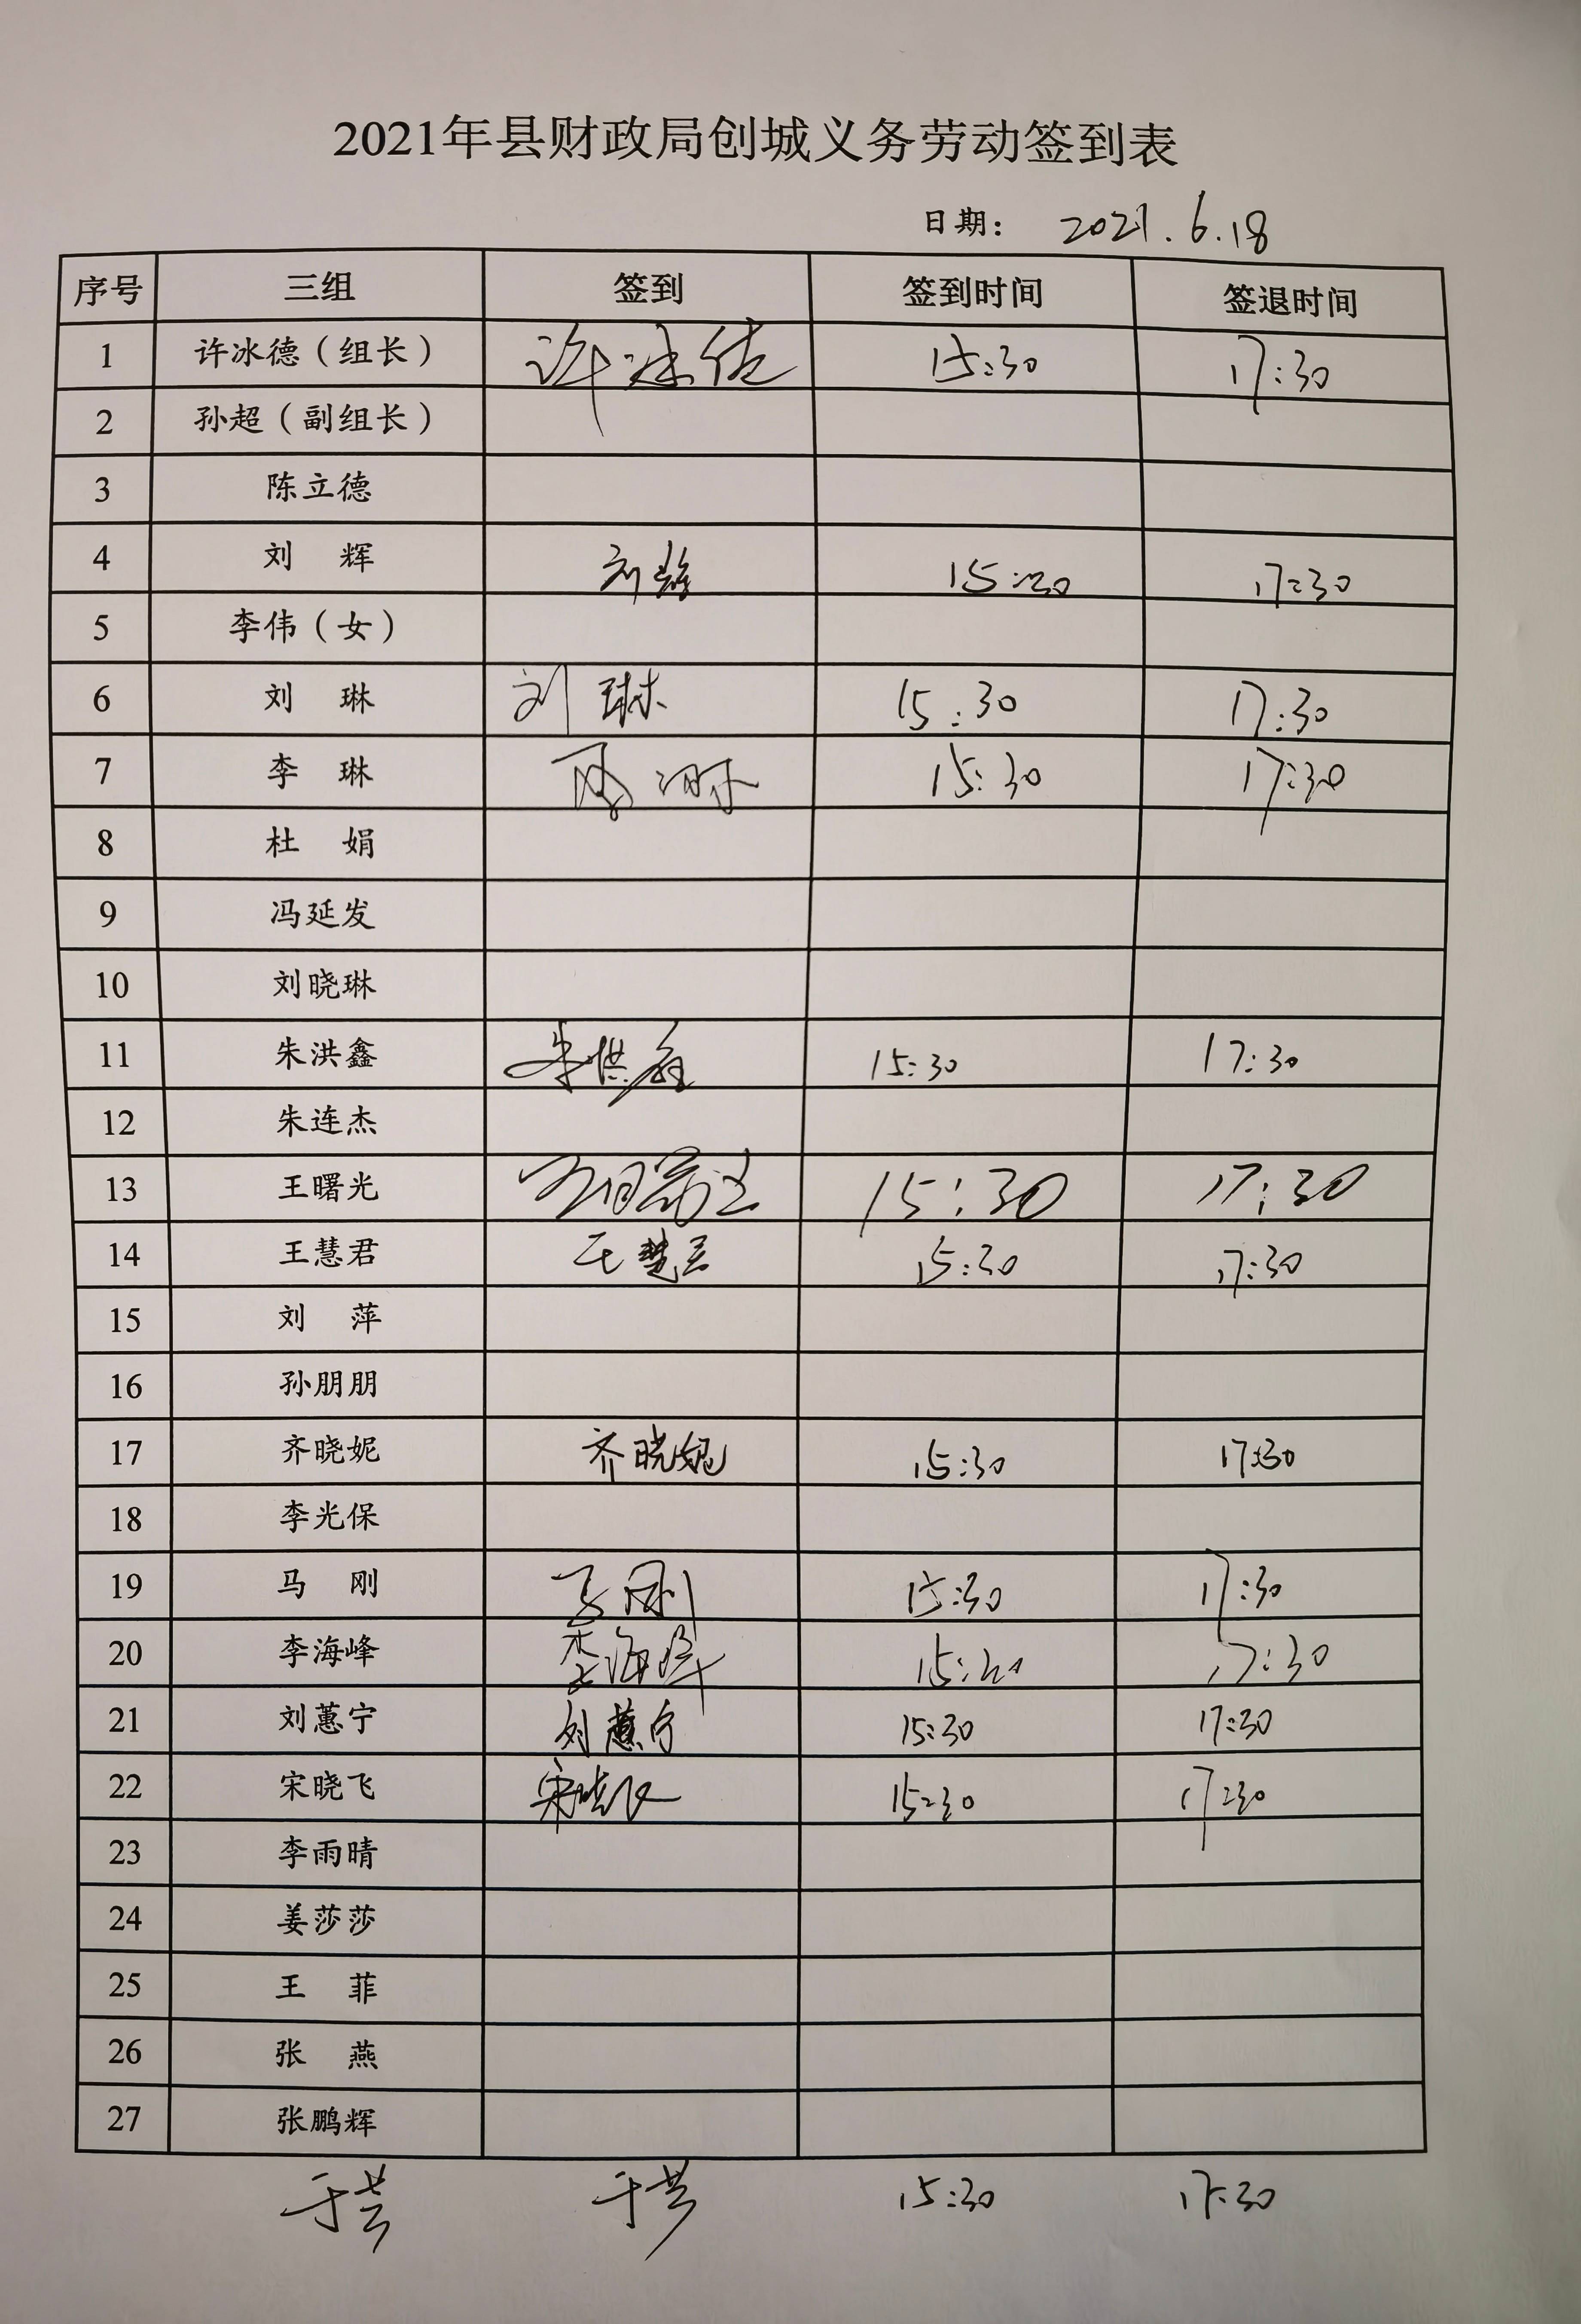 2021年县财政局创城义务劳动签到表
日期： 2021.6.18
序号 三组 签到 签到时间 签退时间
1 许冰德（组长） 许冰德 15:30 17:30
2 孙超（副组长）
3 陈立德
4 刘 辉 刘辉 15:30 17:30
5 李伟（女）
6 刘 琳 刘琳 15:30 17:30
7 李 琳 15:30 17:30
8 杜 娟
9 冯延发
10 刘晓琳
11 朱洪鑫 朱洪鑫 15:30 17:30
12 朱连杰
13 王曙光 王曙光 15:30 17:30
14 王慧君 王慧君 15:30 17:30
15 刘 萍
16 孙朋朋
17 齐晓妮 齐晓妮 15:30 17:30
18 李光保
19 马 刚 马刚 15:30 17:30
20 李海峰 李海峰 15:30 17:30
21 刘蕙宁 刘蕙宁 15:30 17:30
22 宋晓飞 宋晓飞 15:30 17:30
23 李雨晴
24 姜莎莎
25 王 菲
26 张 燕
27 张鹏辉
于芸 于芸 15:30 17:30